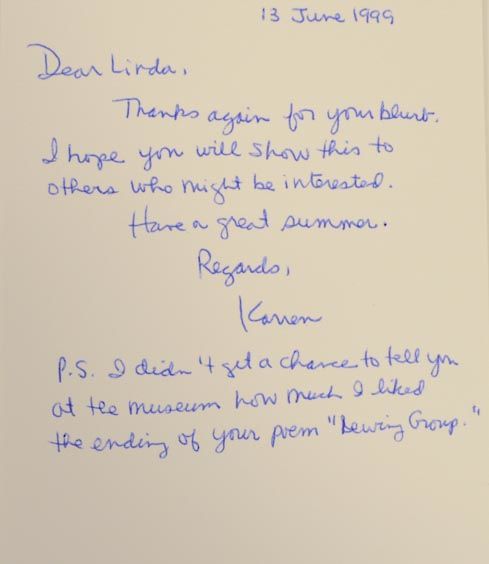 13 June 1999
Dear Linda,
Thanks again for your blurb.
I hope you will show this to
others who might be interested.
Have a great summer.
Regards,
Karren
P.S. I didn't get a chance to tell you
at the museum how much I liked
the ending of your poem "Sewing Group."